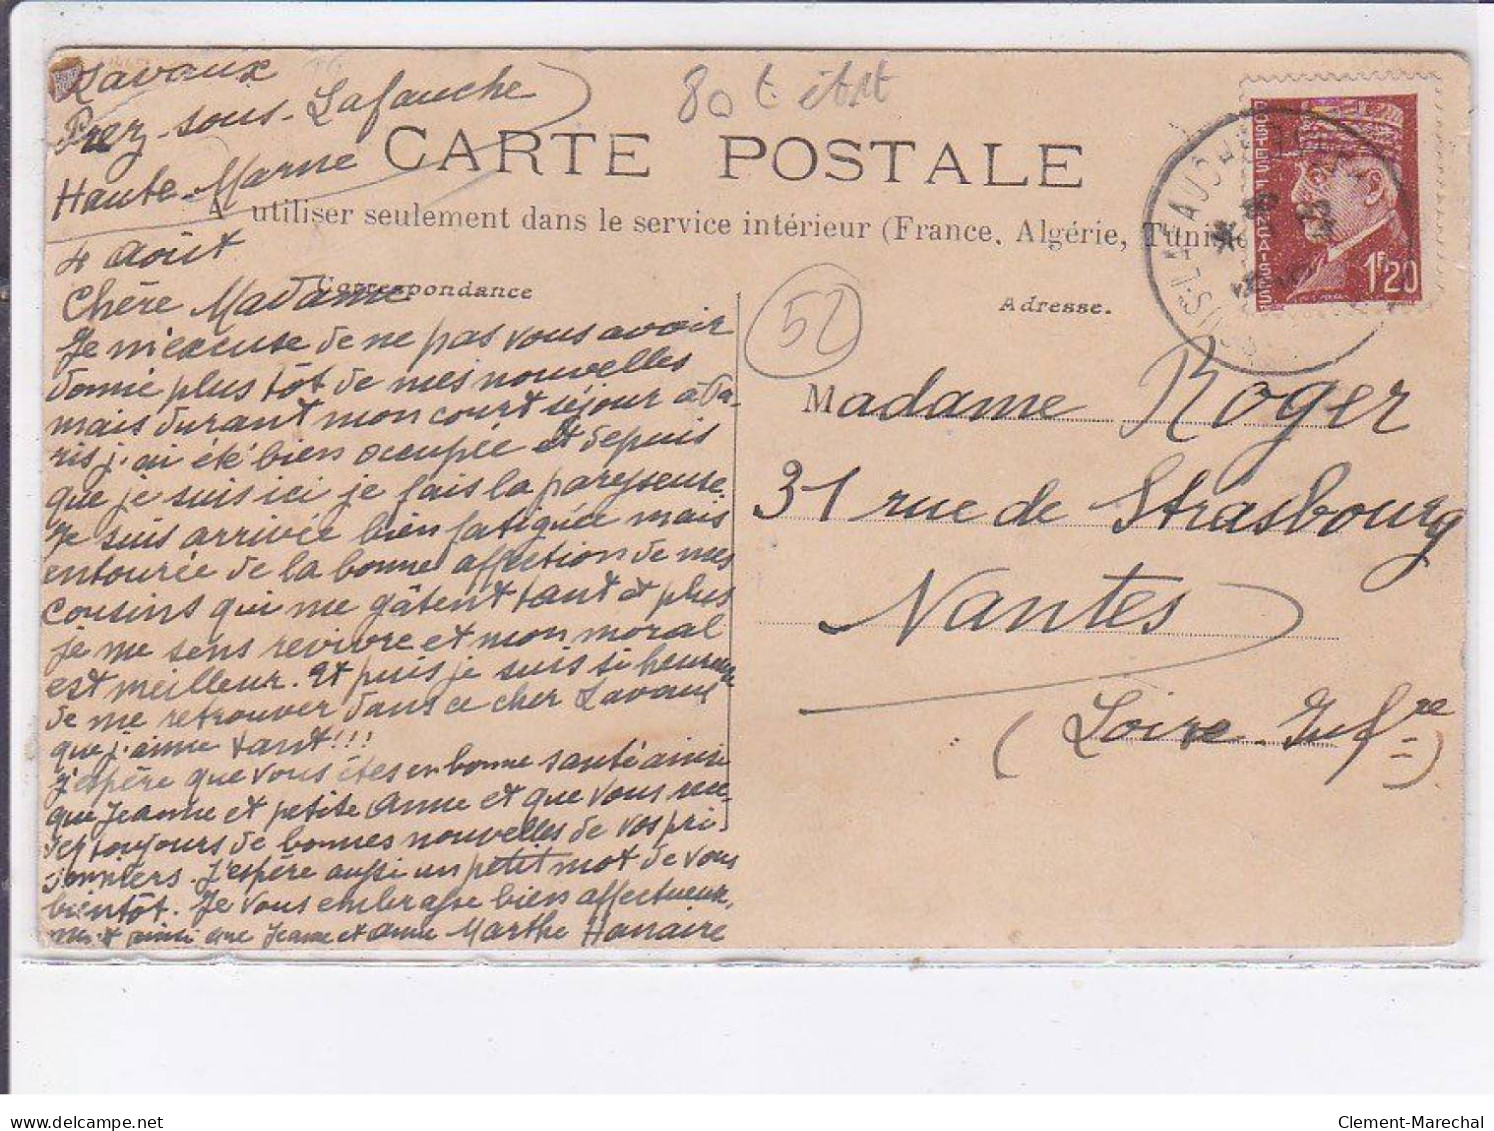 Lavaux
Prez-sous-Lafauche
Haute-Marne
80 t état
CARTE POSTALE
A utiliser seulement dans le service intérieur (France, Algérie, Tunisie
4 Août
Correspondance
Adresse.
1F20
52
Chère Madame
Je m'excuse de ne pas vous avoir
donné plus tôt de mes nouvelles
mais durant mon court séjour à Pa-
ris j'ai été bien occupée et depuis
que je suis ici je fais la paresseuse.
Je suis arrivée bien fatiguée mais
entourée de la bonne affection de mes
cousins qui me gâtent tant et plus
je me sens revivre et mon moral
est meilleur. Et puis je suis si heureuse
de me retrouver dans ce cher Lavaux
que j'aime tant!!!
J'espère que vous êtes en bonne santé ainsi
que Jeanne et petite Anne et que vous rece-
vez toujours de bonnes nouvelles de vos pri-
sonniers. J'espère aussi un petit mot de vous
bientôt. Je vous embrasse bien affectueuse-
ment ainsi que Jeanne et Anne Marthe Hanaire
Madame Roger
31 rue de Strasbourg
Nantes
(Loire-Infre)
Clement-Marechal